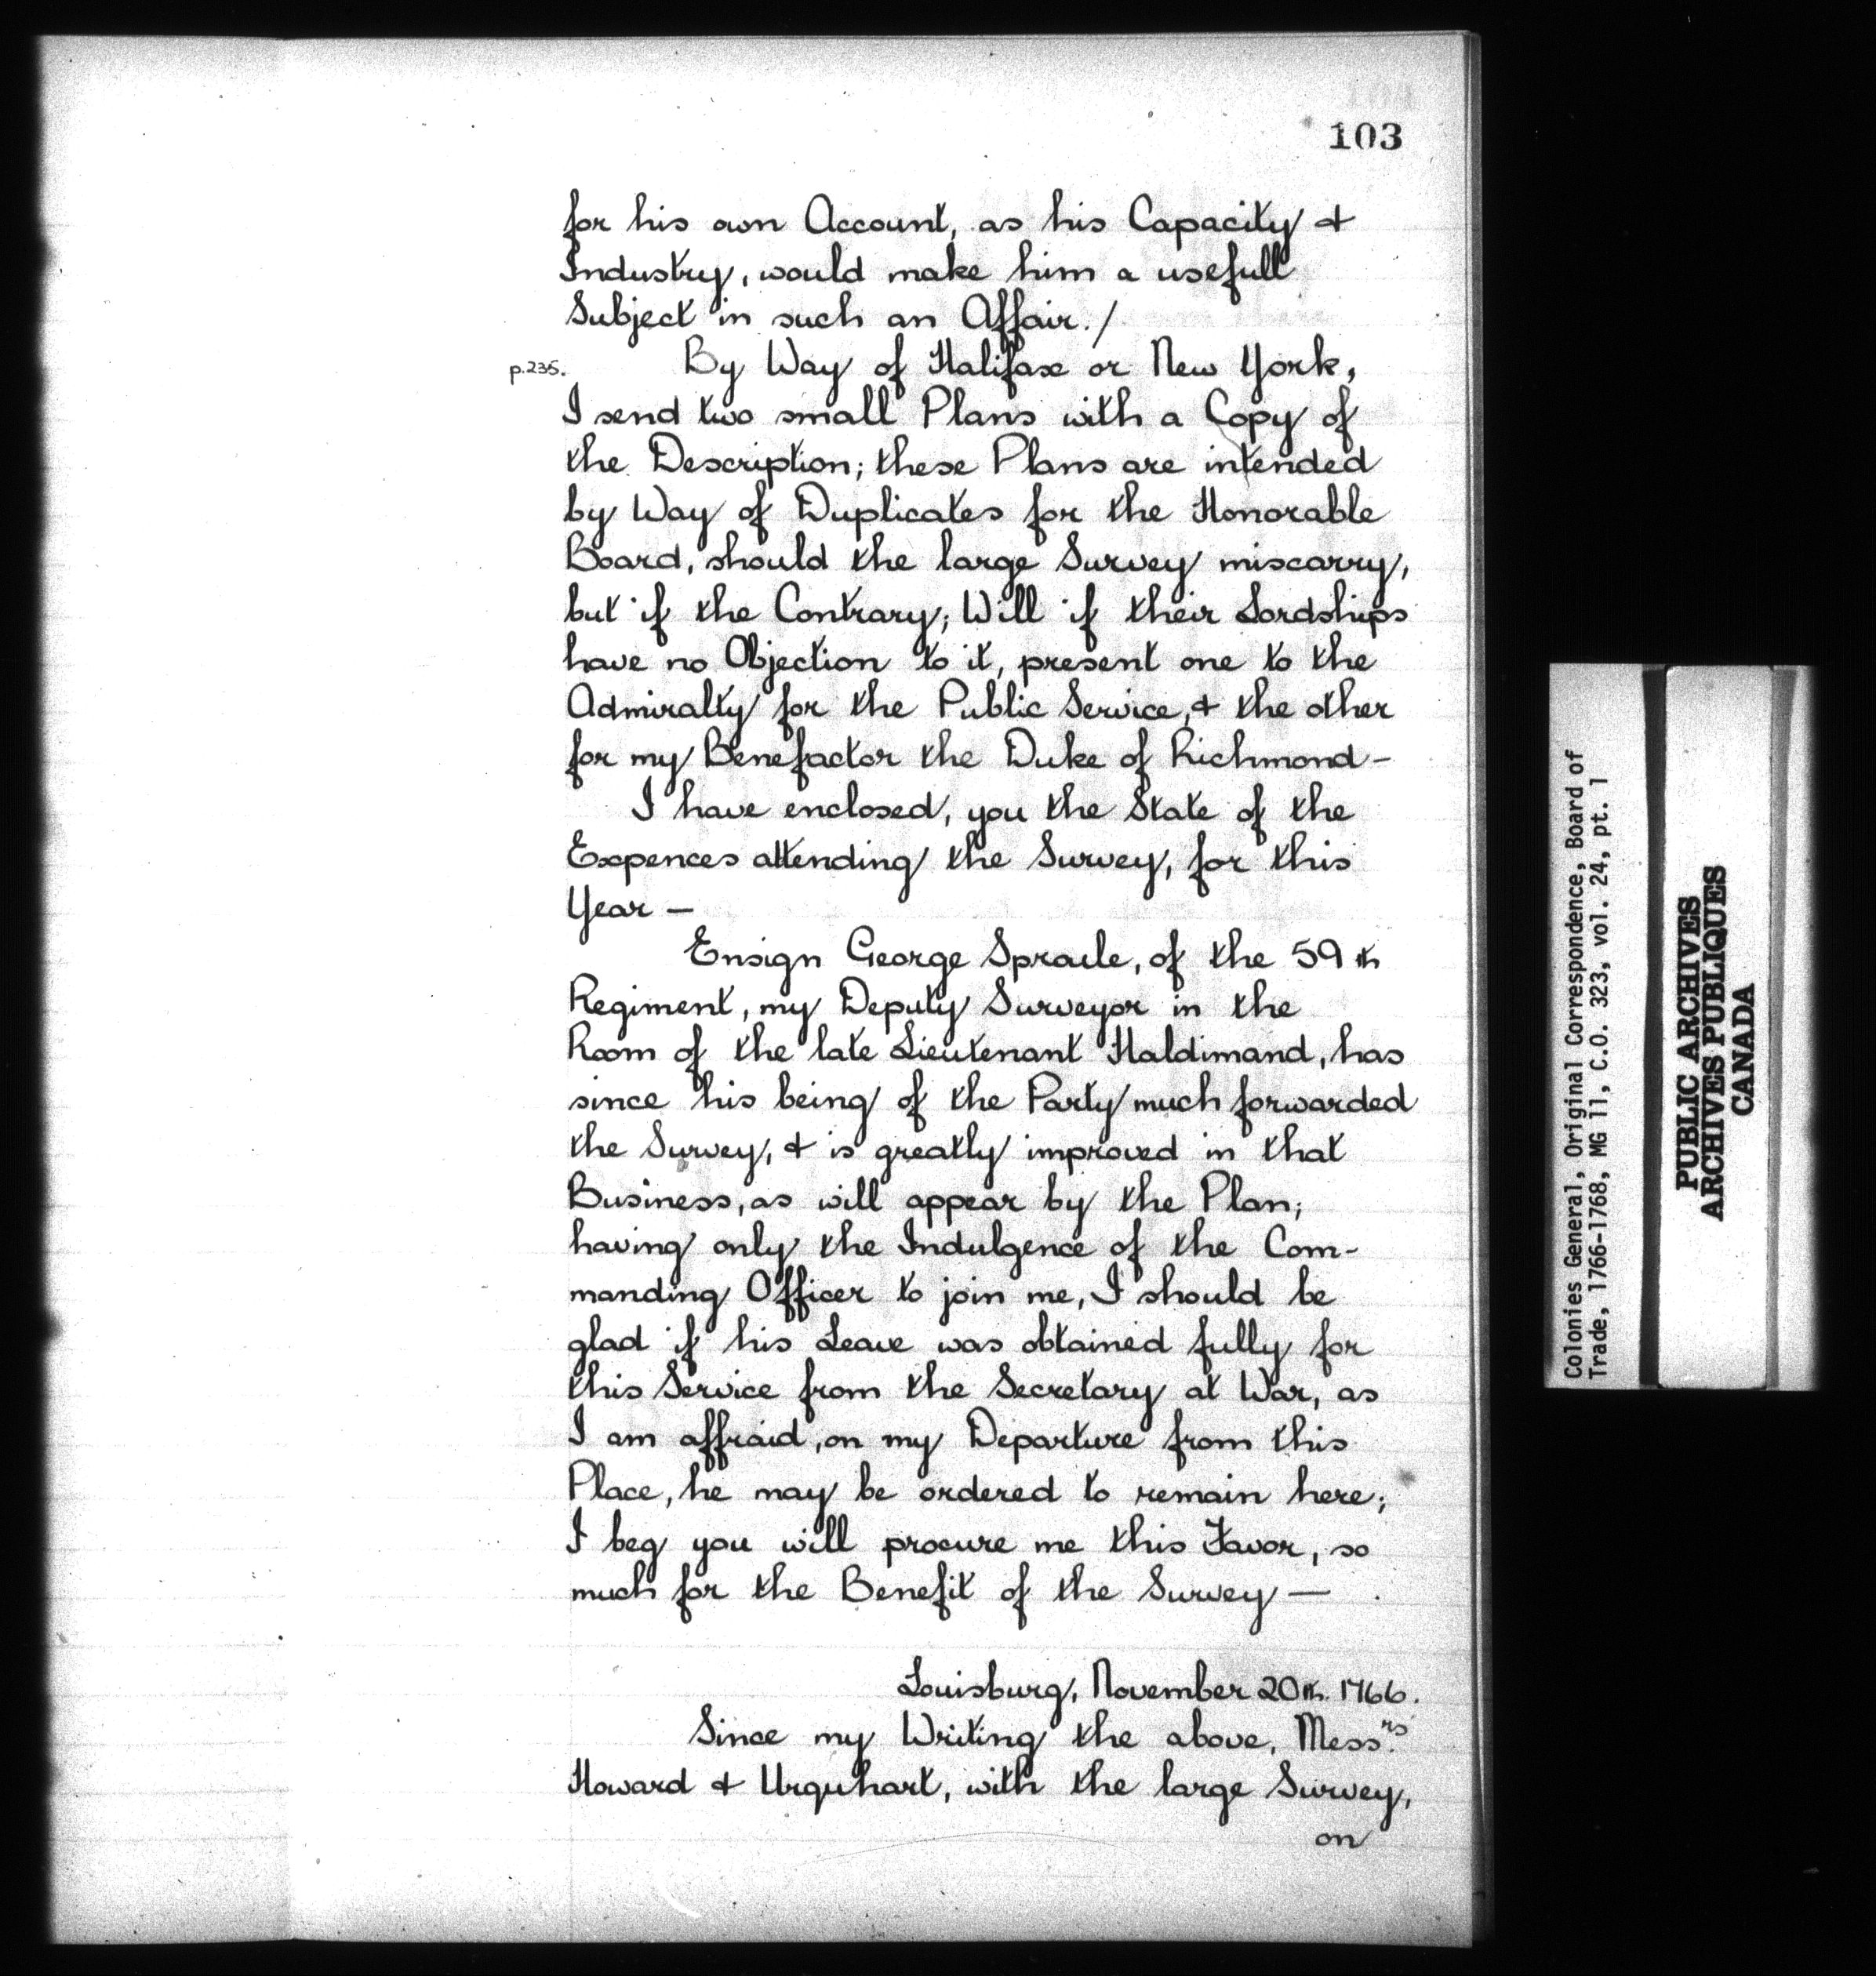 103
for his own Account, as his Capacity &
Industry, would make him a usefull
Subject in such an Affair. /
p.235. By Way of Halifax or New York,
I send two small Plans with a Copy of
the Description; these Plans are intended
by Way of Duplicates for the Honorable
Board, should the large Survey miscarry,
but if the Contrary; Will if their Lordships
have no Objection to it, present one to the
Admiralty for the Public Service, & the other
for my Benefactor the Duke of Richmond -
I have enclosed, you the State of the
Expences attending the Survey, for this
Year —
Ensign George Sproule, of the 59th
Regiment, my Deputy Surveyor in the
Room of the late Lieutenant Haldimand, has
since his being of the Party much forwarded
the Survey, & is greatly improved in that
Business, as will appear by the Plan;
having only the Indulgence of the Com-
manding Officer to join me, I should be
glad if his Leave was obtained fully for
this Service from the Secretary at War, as
I am affraid, on my Departure from this
Place, he may be ordered to remain here;
I beg you will procure me this Favor, so
much for the Benefit of the Survey —
Louisburg, November 20th. 1766.
Since my Writing the above, Mess.rs
Howard & Urquhart, with the large Survey,
on
Colonies General, Original Correspondence, Board of
Trade, 1766-1768, MG 11, C.O. 323, vol. 24, pt. 1
PUBLIC ARCHIVES
ARCHIVES PUBLIQUES
CANADA